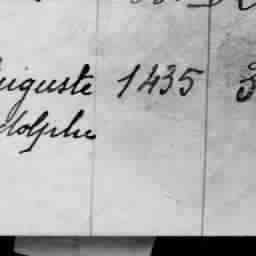 uguste 1435 3
dolphe